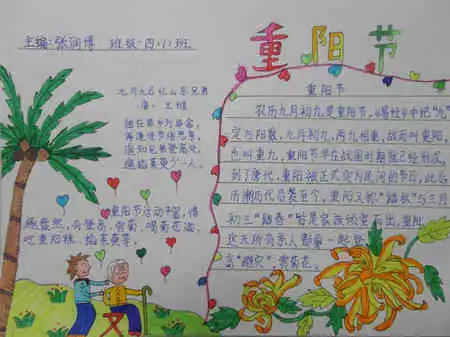 主编:张润博 班级:四(1)班
重阳节
九月九日忆山东兄弟
(唐) 王维
独在异乡为异客,
每逢佳节倍思亲,
遥知兄弟登高处,
遍插茱萸少一人。
重阳节活动丰富,情
趣盎然,有登高,赏菊,喝菊花酒,
吃重阳糕、插茱萸等。
重阳节
农历九月初九是重阳节,《易经》中把"九"
定为阳数,九月初九,两九相重,故而叫重阳,
也叫重九,重阳节早在战国时期就已经形成,
到了唐代,重阳被正式定为民间的节日,此后
历朝历代沿袭至今,重阳又称"踏秋"与三月
初三"踏春"皆是家族倾室而出,重阳
这天所有亲人都要一起登
高"避灾"赏菊花。